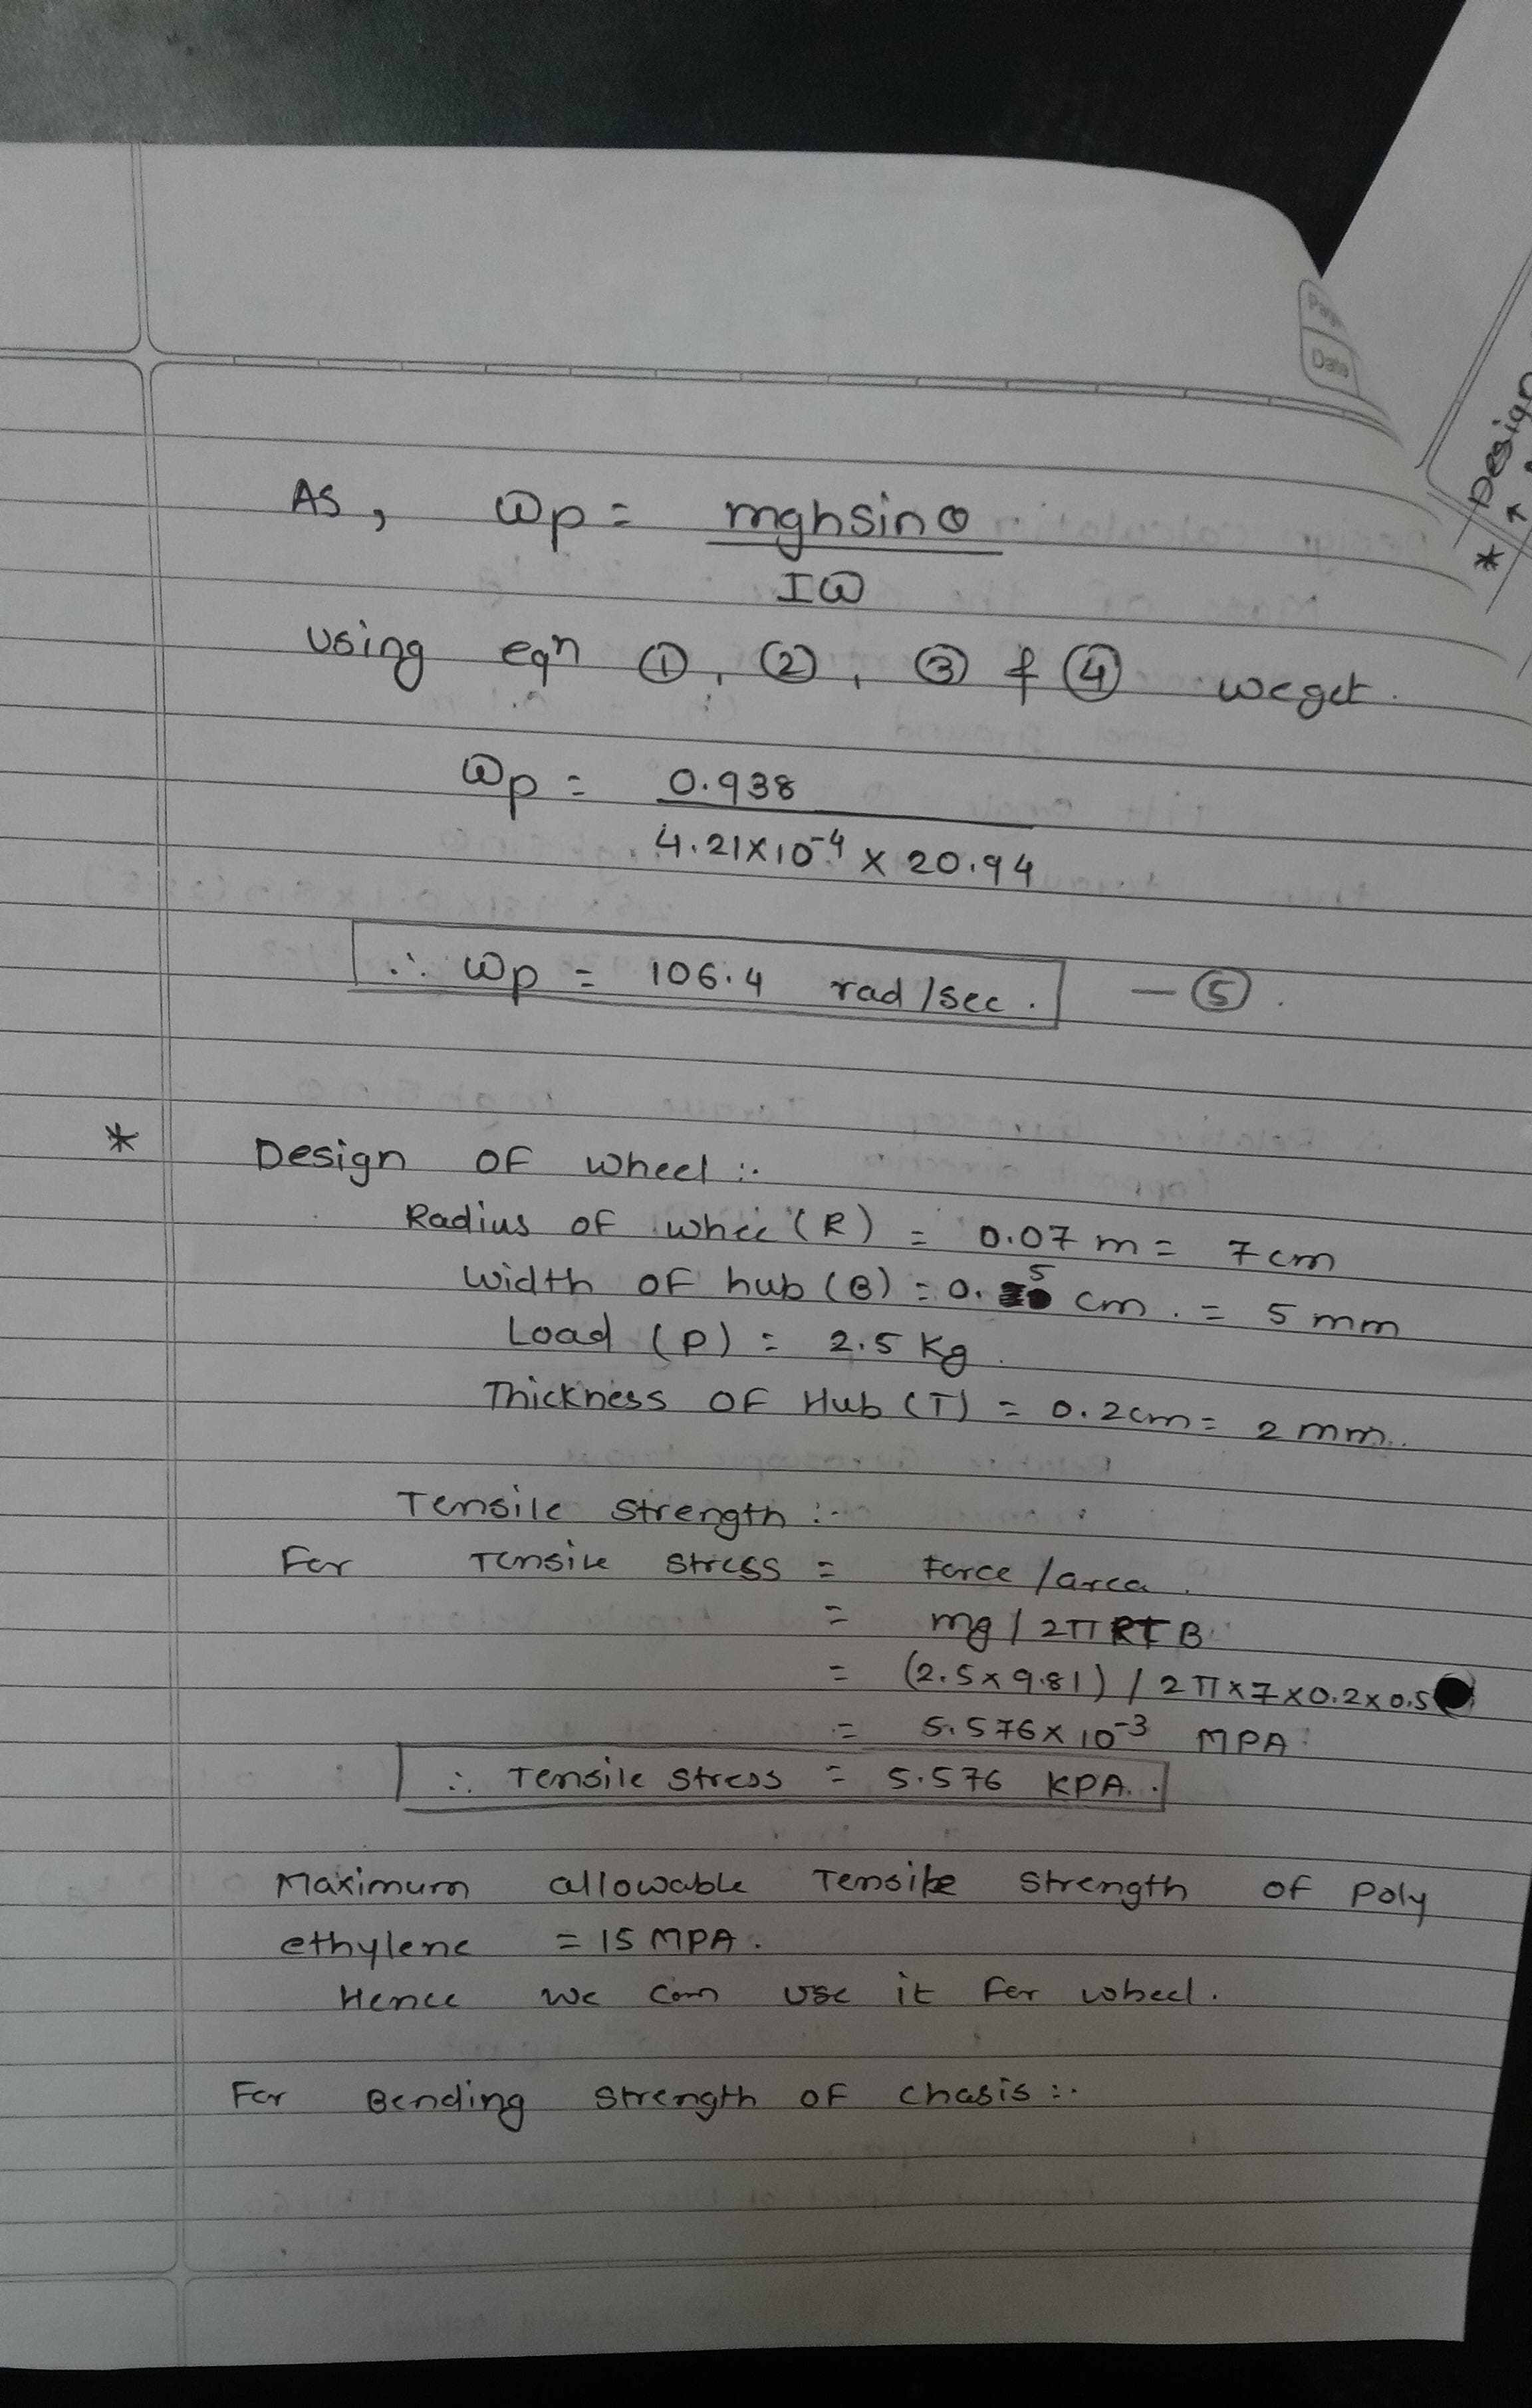 Page
Date
* Design
As, ωp = mghsinθ
Iω
using eqn ①, ②, ③ & ④ we get.
ωp = 0.938
4.21x10⁻⁴ x 20.94
∴ ωp = 106.4 rad/sec. — ⑤.
* Design of wheel :.
Radius of whee (R) = 0.07 m = 7 cm
width of hub (B) = 0.5 cm. = 5 mm
Load (P) = 2.5 Kg.
Thickness of Hub (T) = 0.2cm = 2 mm.
Tensile strength :-
For Tensile stress = Force/area.
= mg / 2π RT B
= (2.5x9.81) / 2π x 7 x 0.2 x 0.5
= 5.576 x 10⁻³ MPA.
∴ Tensile stress = 5.576 KPA..
Maximum allowable Tensile strength of Poly
ethylene = 15 MPA.
Hence we can use it for wheel.
For Bending strength of chasis :.